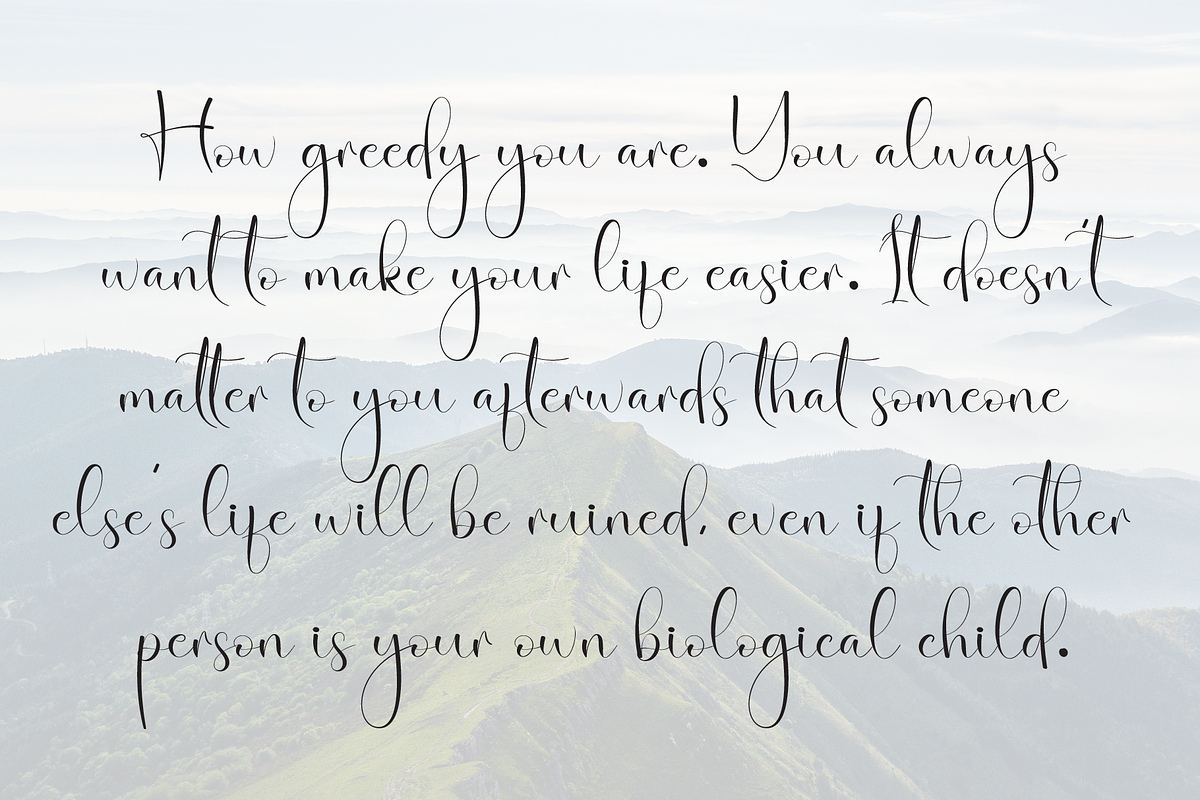 How greedy you are. You always
want to make your life easier. It doesn't
matter to you afterwards that someone
else's life will be ruined, even if the other
person is your own biological child.